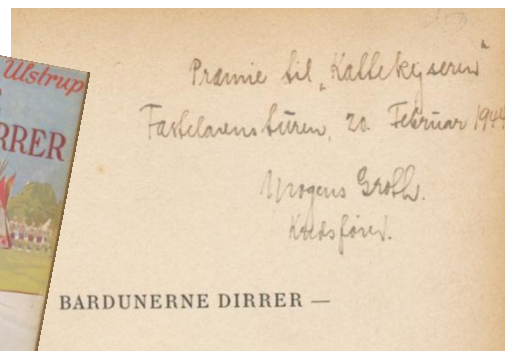 Ulstrup
RRER
Præmie til „Kattekyseren"
Fastelavnsturen, 20. Februar 1944
Mogens Groth.
Kredsfører.
BARDUNERNE DIRRER —